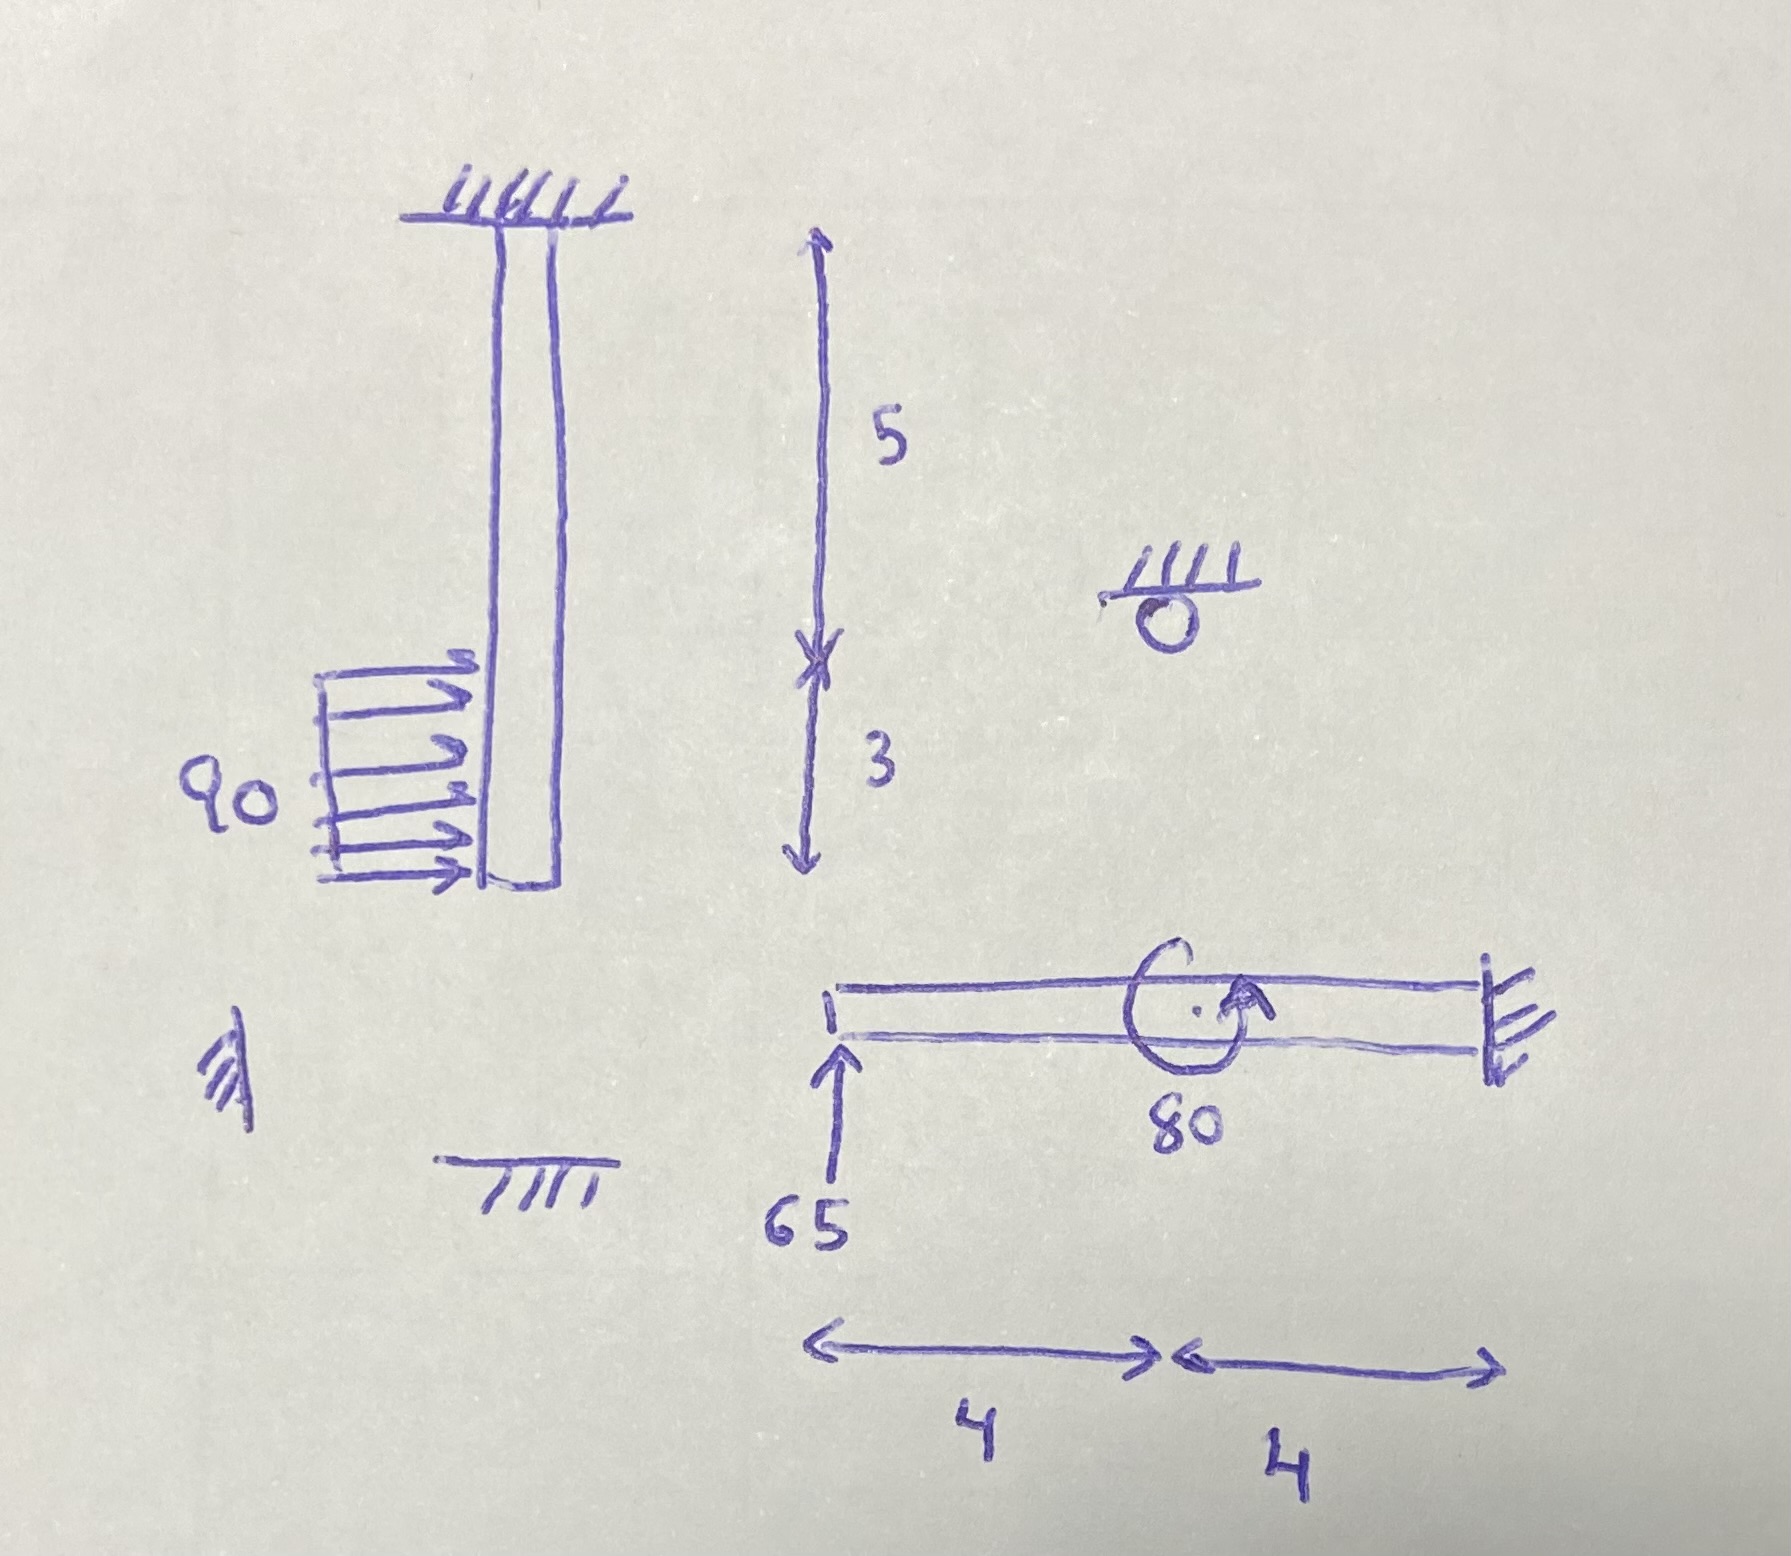 5
3
90
80
65
4
4